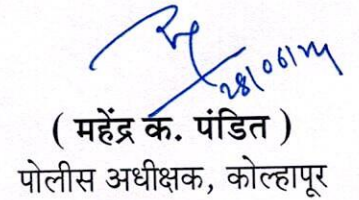 28/06/24
( महेंद्र क. पंडित )
पोलीस अधीक्षक, कोल्हापूर